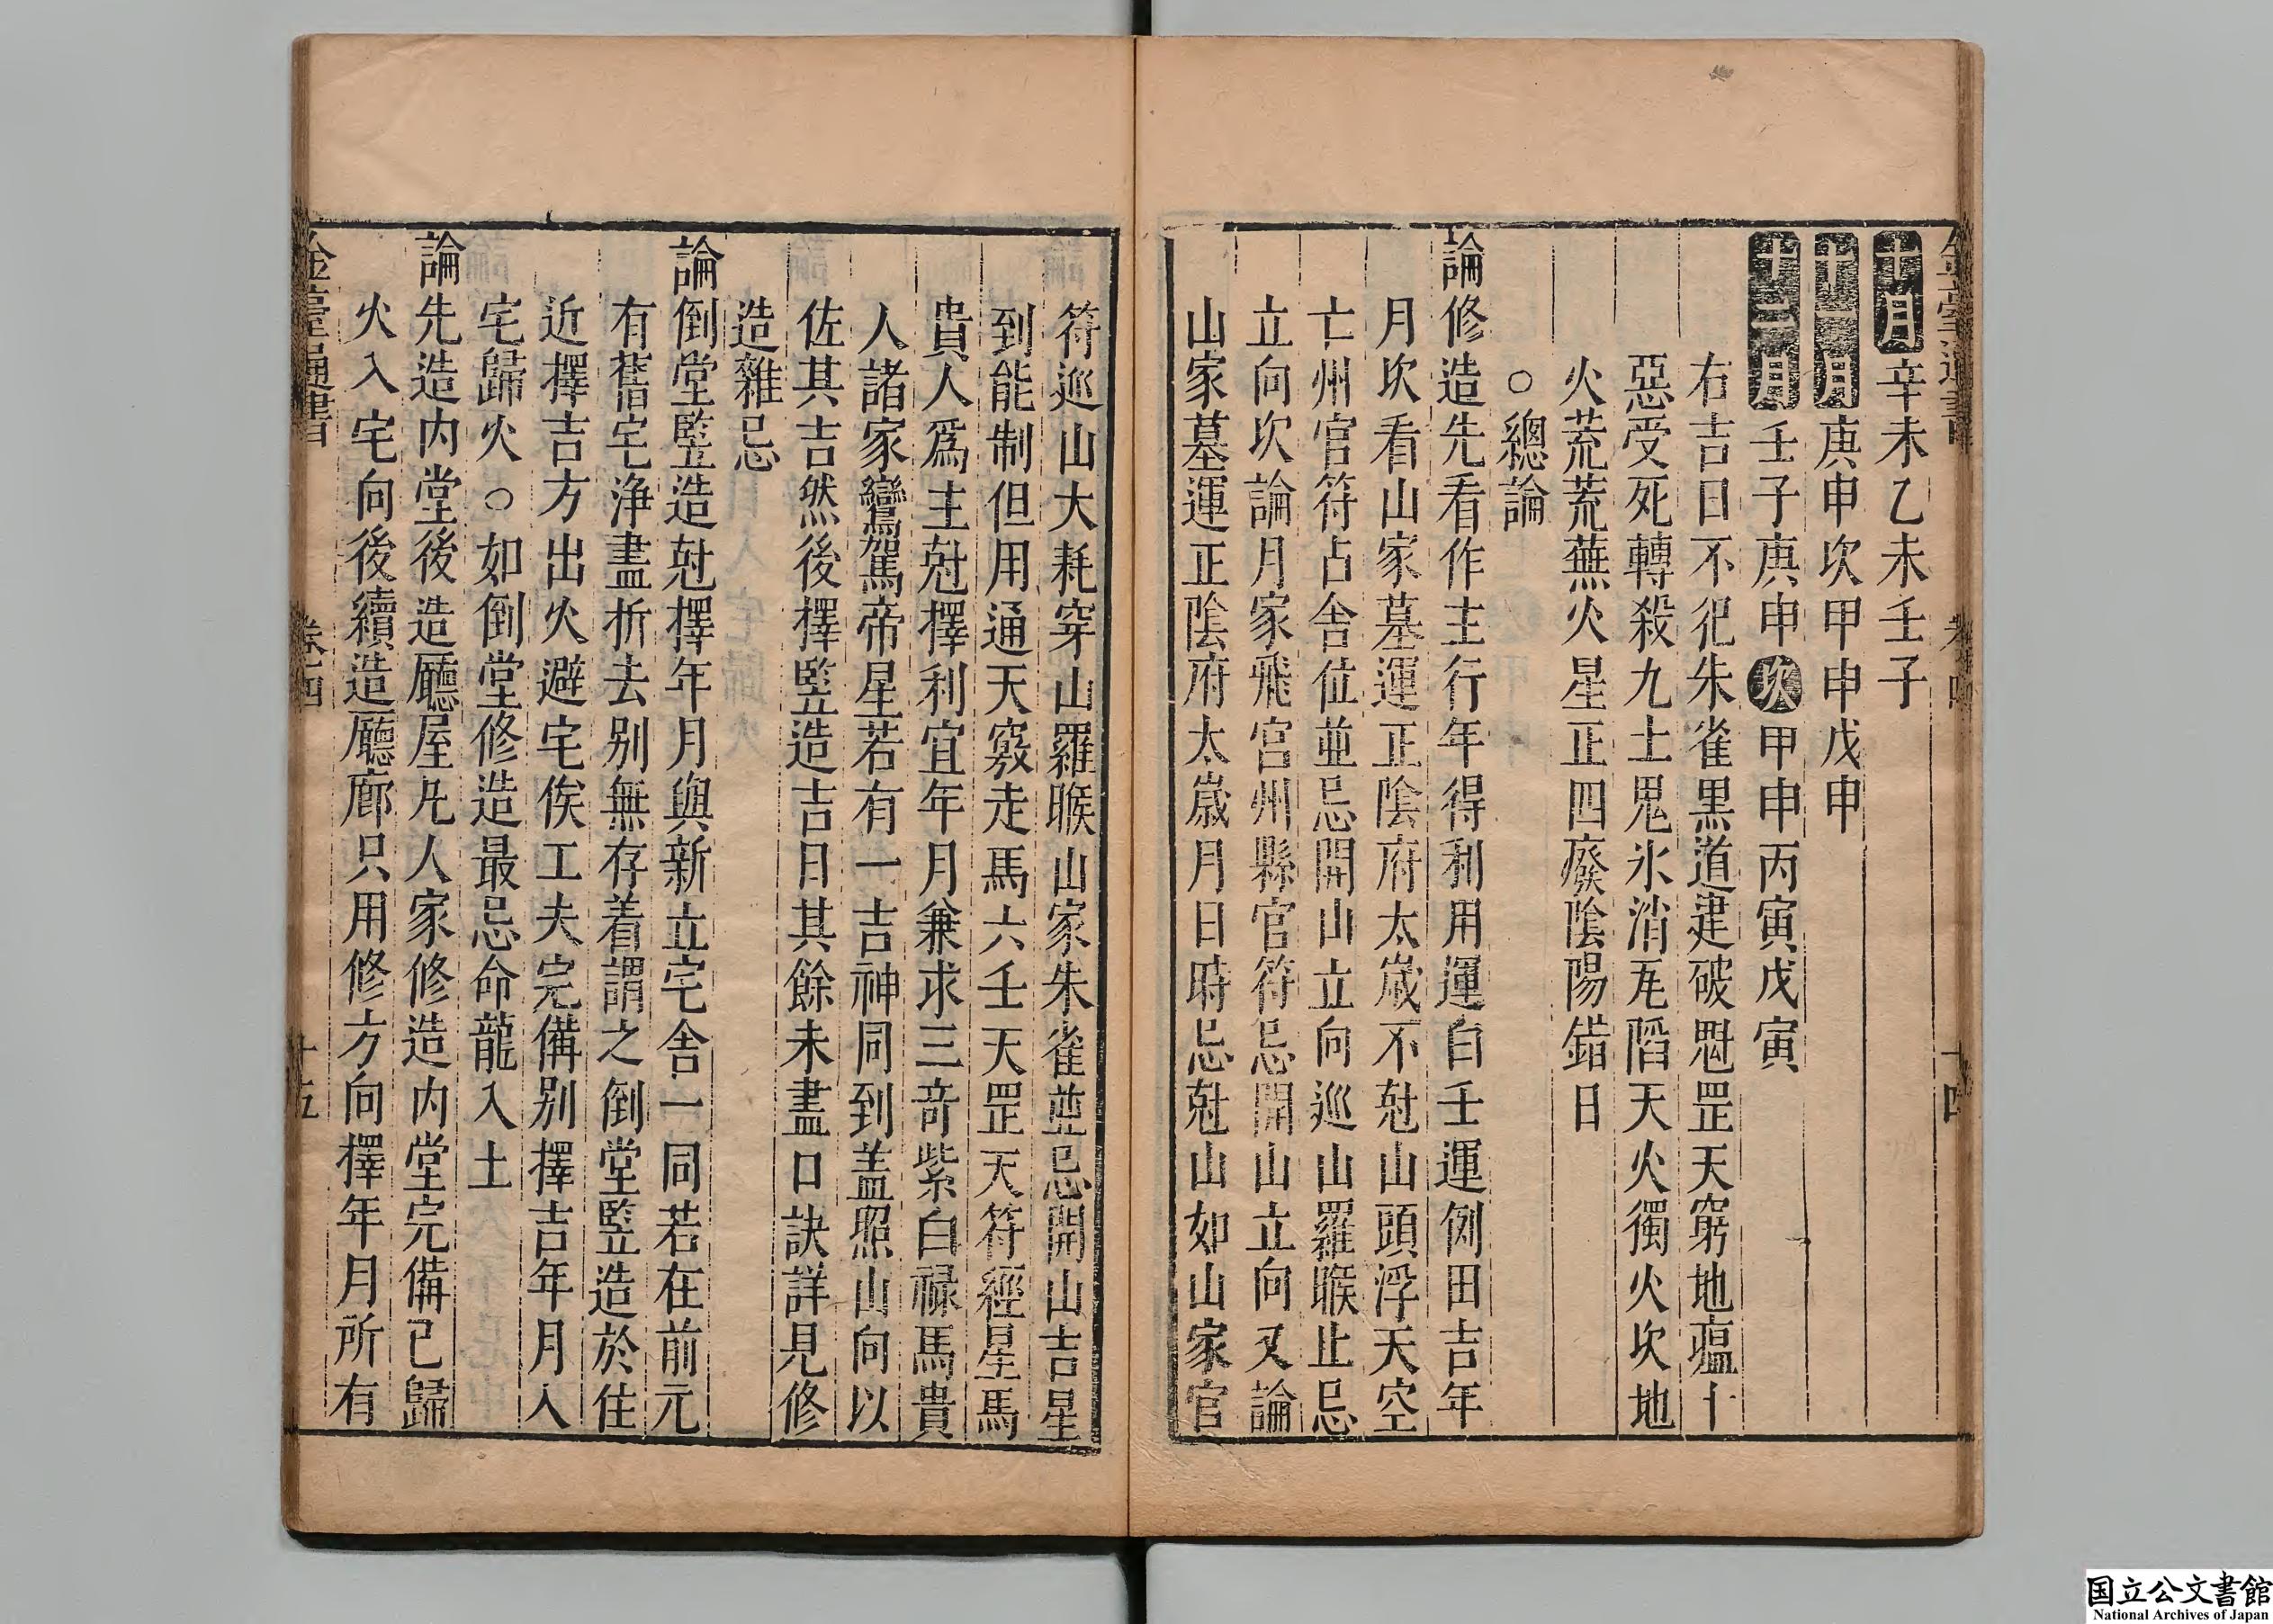 十月辛未乙未壬子
十一月庚申次甲申戊申
十二月壬子庚申次甲申丙寅戊寅
右吉日不犯朱雀黒道建破魁罡天窮地瘟十
惡受死轉殺九土鬼氷消瓦陷天火獨火次地
火荒荒蕪火星正四廢陰陽錯日
○總論
論修造先看作主行年得利用運白壬運例田吉年
月次看山家墓運正陰府太歲不尅山頭浮天空
亡州官符占舍位並忌開山立向巡山羅睺止忌
立向次論月家飛宮州縣官符忌開山立向又論
山家墓運正陰府太歲月日時忌尅山如山家官
符巡山大耗穿山羅睺山家朱雀並忌開山吉星
到能制但用通天竅走馬六壬天罡天符經星馬
貴人爲主尅擇利宜年月兼求三竒紫白禄馬貴
人諸家鸞駕帝星若有一吉神同到盖照山向以
佐其吉然後擇竪造吉日其餘未盡口訣詳見修
造雜忌
論倒堂竪造尅擇年月與新立宅舍一同若在前元
有舊宅浄盡折去别無存着謂之倒堂竪造於住
近擇吉方出火避宅俟工夫完備别擇吉年月入
宅歸火○如倒堂修造最忌命龍入土
論先造内堂後造廳屋凡人家修造内堂完備已歸
火入宅向後續造廳廊只用修方向擇年月所有
金臺通書
卷四
十五
十四
国立公文書館
National Archives of Japan